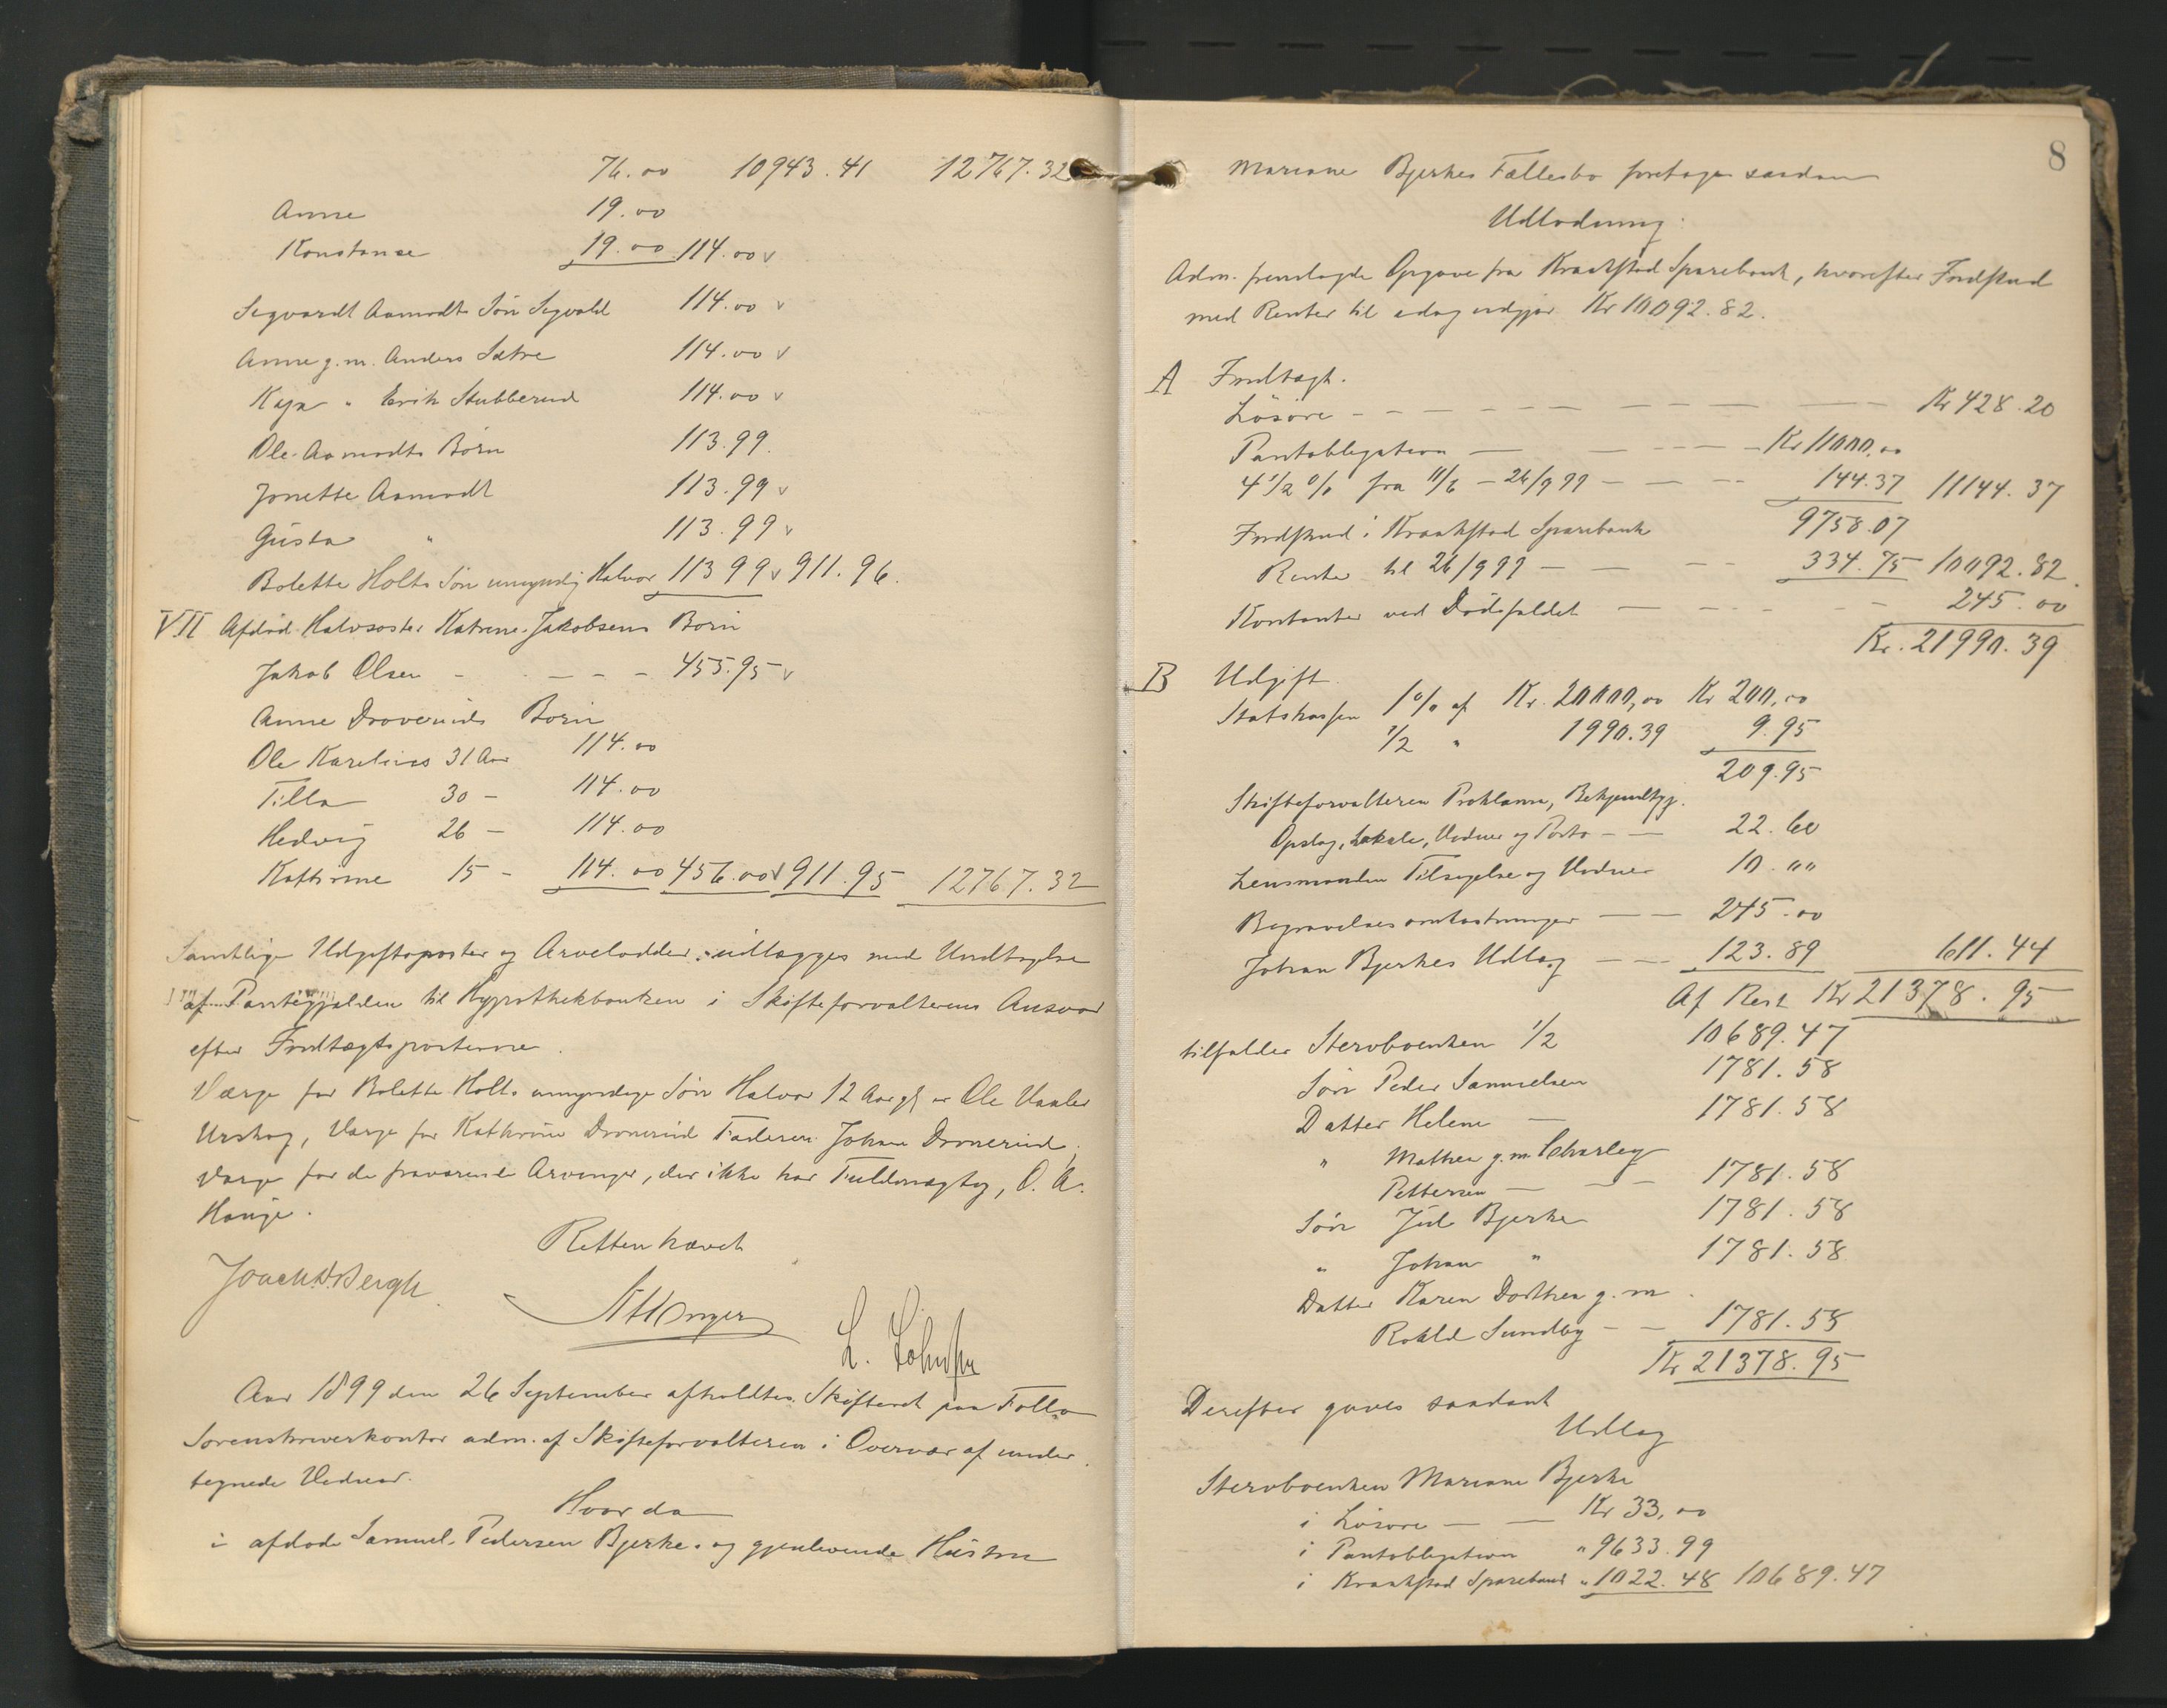 76.00 10943.41 12767.32
Anne 19.00
Konstanse 19.00 114.00 v
Sigvardt Aamodts Søn Sigvald 114.00 v
Anne g.m. Anders Sætre 114.00 v
Kaja " Erik Stubberud 114.00 v
Ole Aamodts Børn 113.99
Jonette Aamodt 113.99 v
Gusta " 113.99 v
Bolette Holts Søn umyndig Halvor 113 99 v 911.96.
VII Afdød Halvsøster Katrine Jakobsens Børn
Jakob Olsen - - - - 455.95 v
Anne Droveruds Børn
Ole Karelius 31 Aar 114.00
Tilla 30 - 114.00
Hedvig 26 - 114.00
Kathrine 15 - 114.00 456.00 v 911.95 12767.32
Samtlige Udgiftsposter og Arvelodder udlægges med Undtagelse
af Pantegjælden til Hypothekbanken i Skifteforvalterens Ansvar
efter Indtægtsposterne.
Værge for Bolette Holts umyndige Søn Halvor 12 Aar gl er Ole Vaaler
Urskog, Værge for Kathrine Droverud Faderen Johan Droverud,
Værge for de fraværende Arvinger, der ikke har Fuldmægtig, O. A.
Hauge.
Retten hævet
Joach. Bergh.
Aar 1899 den 26 September afholdtes Skifteret paa Follo
Sorenskriverkontor adm. af Skifteforvalteren i Overvær af under
tegnede Vidner.
Hvor da
i afdøde Samuel Pedersen Bjerke og gjenlevende Hustru
8
Mariane Bjerkes Fællesbo foretages saadan
Udlodning:
Adm. fremlagde Opgave fra Kraakstad Sparebank, hvorefter Indskud
med Renter til idag udgjør Kr 10092.82.
A Indtægt.
Løsøre - - - - - - - - Kr 428.20
Pantobligation - - - - Kr 11000,00
4 1/2 % fra 11/6 - 26/9 99 - - - 144.37 11144.37
Indskud i Kraakstad Sparebank 9758.07
Renter til 26/9 99 - - - 334.75 10092.82.
Kontanter ved Dødsfaldet - - - - 245.00
Kr. 21990.39
B Udgift.
Statskassen 1 % af Kr. 20000,00 Kr 200,00
1/2 " 1990.39 9.95
209.95
Skifteforvalteren Proklama, Bekjendtg.
Opslag, Lokale, Vidner og Porto - - 22.60
Lensmanden Tilsigelse og Vidner 10.""
Begravelsesomkostninger - - 245.00
Johan Bjerkes Udlæg - - 123.89 611.44
Af Rest Kr 21378.95
tilfalder Stervboenken 1/2 10689.47
Søn Peder Samuelsen 1781.58
Datter Helene - 1781.58
" Mathea g.m. Charley
Pettersen - - - 1781.58
Søn Jul Bjerke 1781.58
" Johan " 1781.58
Datter Karen Dorthea g.m.
Sundby - - 1781.58
Kr 21378.95
Derefter gaves saadant
Udlæg
Stervboenken Mariane Bjerke
i Løsøre - - Kr 33,00
i Pantobligation " 9633.99
i Kraakstad Sparebank " 1022.48 10689.47